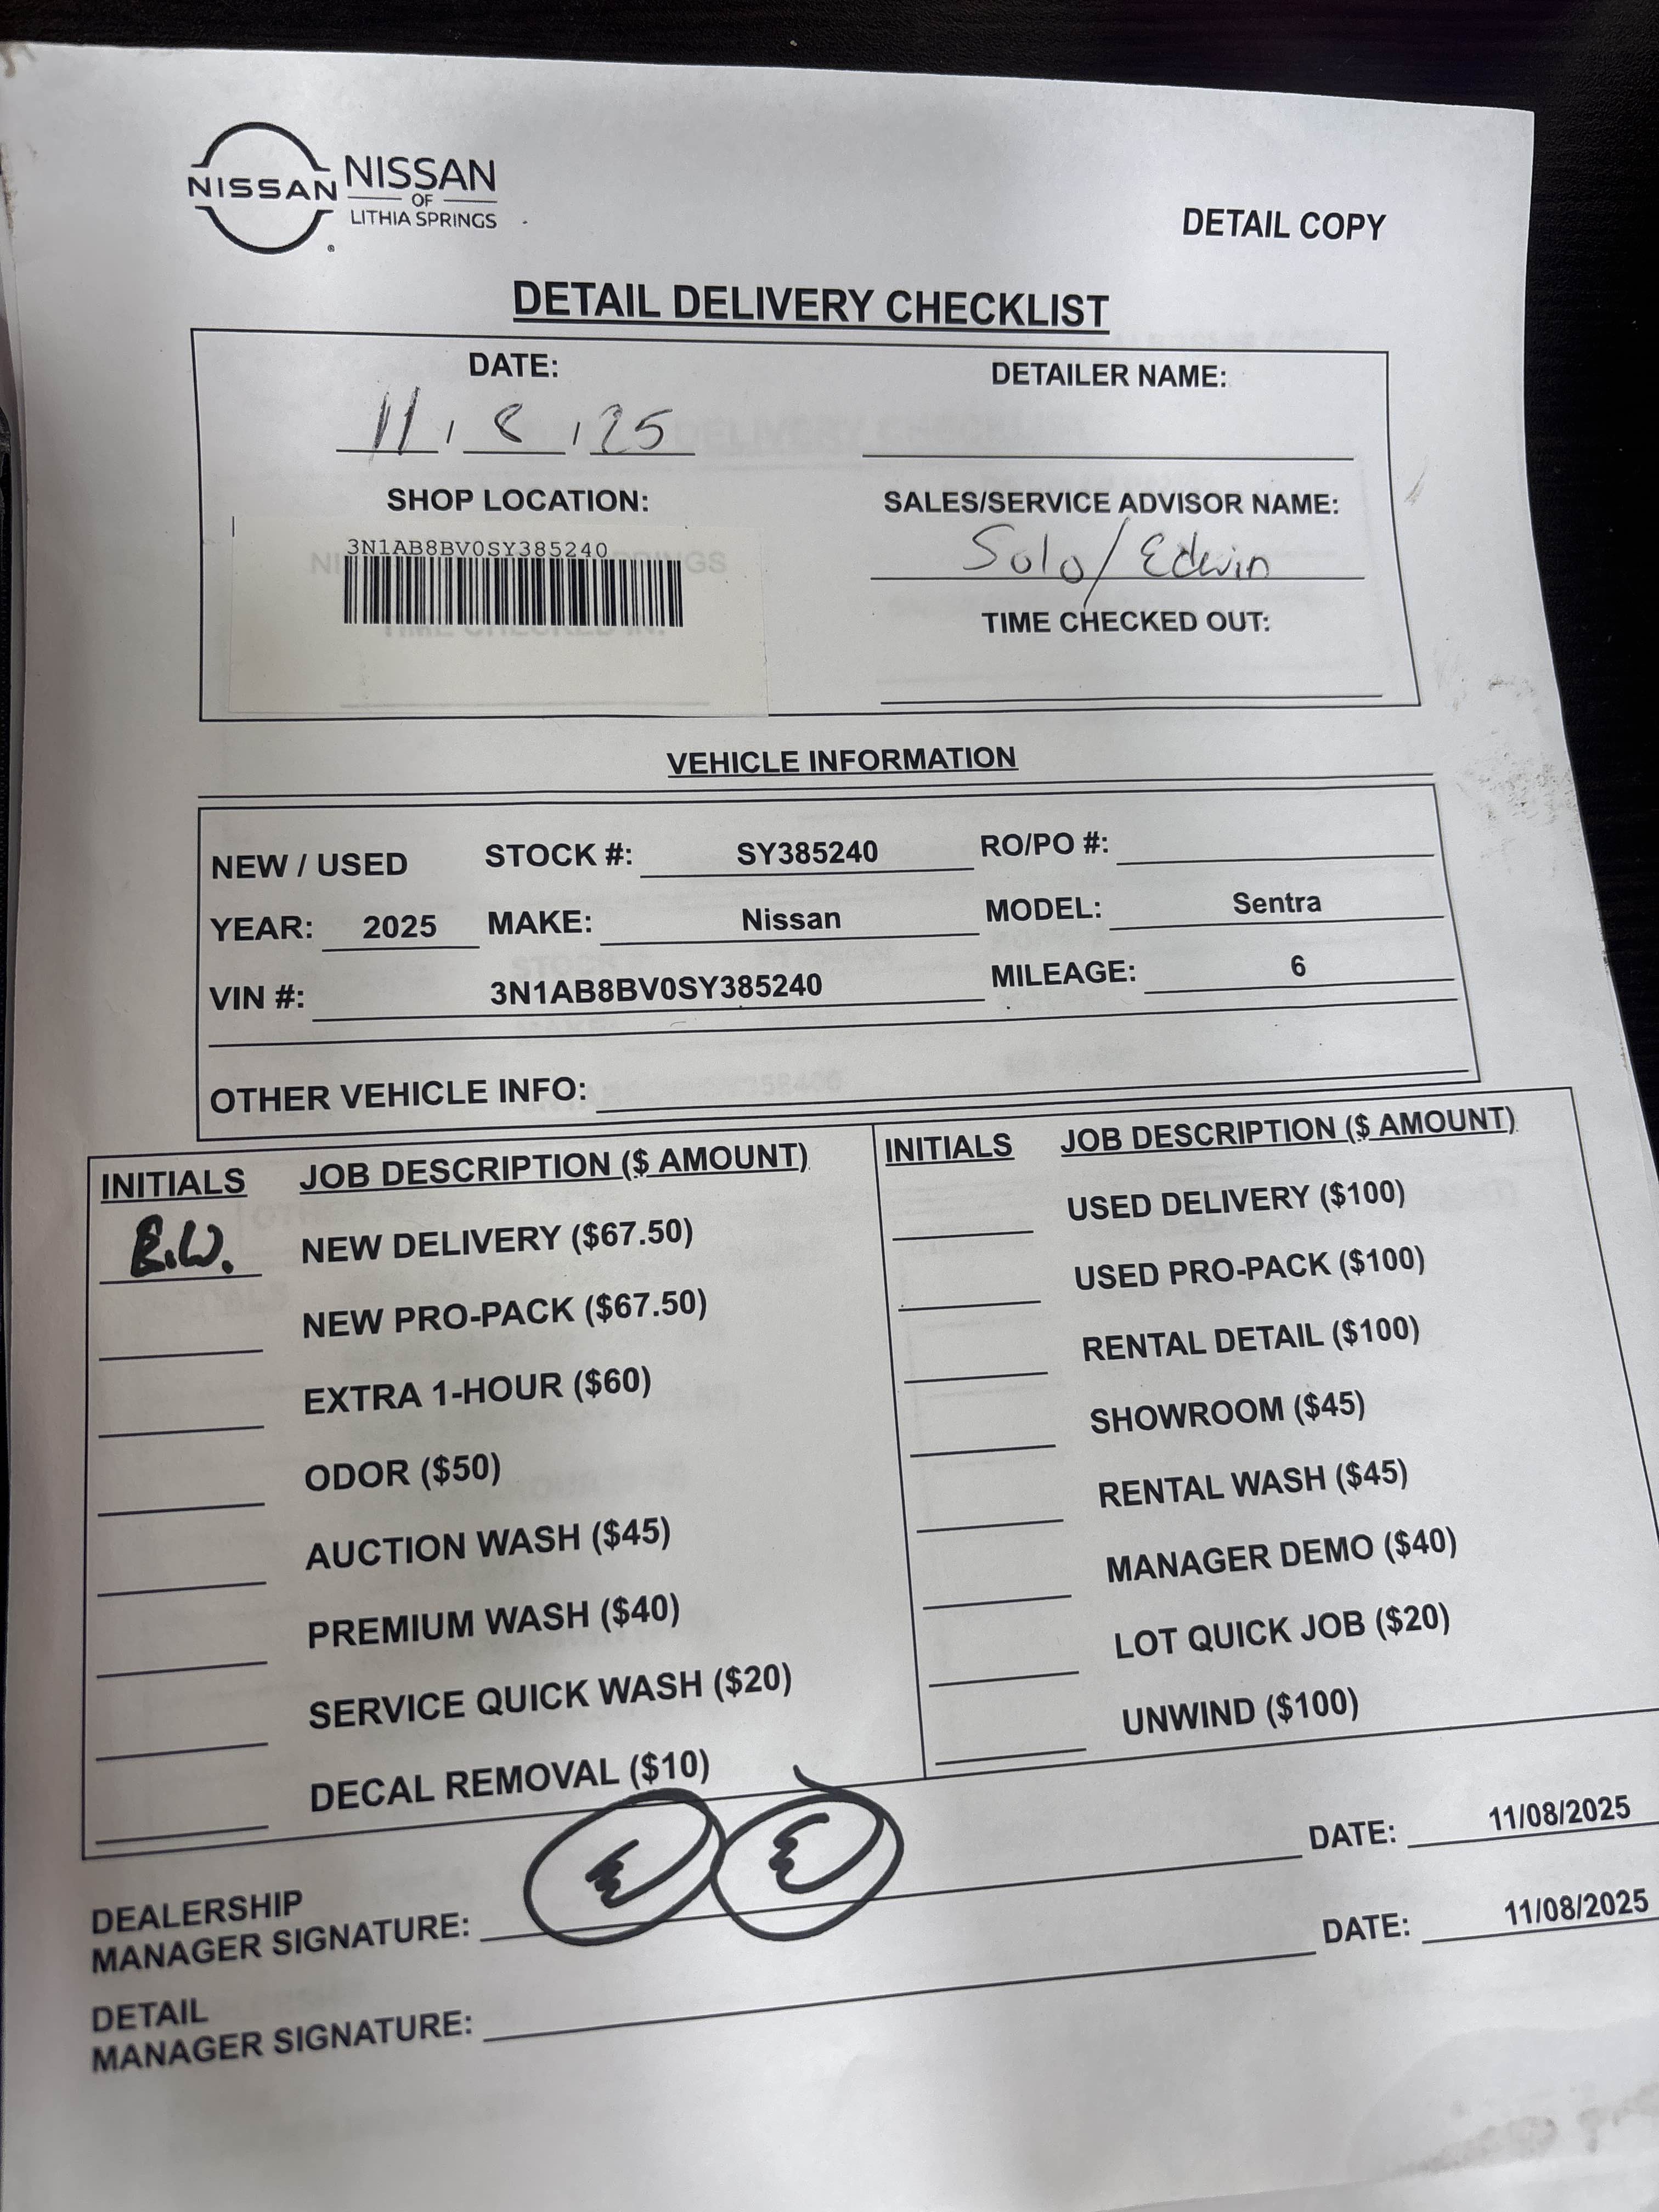 NISSAN NISSAN
OF
LITHIA SPRINGS
DETAIL COPY
DETAIL DELIVERY CHECKLIST
DATE: DETAILER NAME:
11 / 8 / 25
SHOP LOCATION: SALES/SERVICE ADVISOR NAME:
3N1AB8BV0SY385240 Solo/Edwin
TIME CHECKED OUT:
VEHICLE INFORMATION
NEW / USED STOCK #: SY385240 RO/PO #:
YEAR: 2025 MAKE: Nissan MODEL: Sentra
VIN #: 3N1AB8BV0SY385240 MILEAGE: 6
OTHER VEHICLE INFO:
INITIALS JOB DESCRIPTION ($ AMOUNT) INITIALS JOB DESCRIPTION ($ AMOUNT)
E.W. NEW DELIVERY ($67.50) USED DELIVERY ($100)
NEW PRO-PACK ($67.50) USED PRO-PACK ($100)
EXTRA 1-HOUR ($60) RENTAL DETAIL ($100)
ODOR ($50) SHOWROOM ($45)
AUCTION WASH ($45) RENTAL WASH ($45)
PREMIUM WASH ($40) MANAGER DEMO ($40)
SERVICE QUICK WASH ($20) LOT QUICK JOB ($20)
DECAL REMOVAL ($10) UNWIND ($100)
DEALERSHIP
MANAGER SIGNATURE: DATE: 11/08/2025
DETAIL
MANAGER SIGNATURE: DATE: 11/08/2025